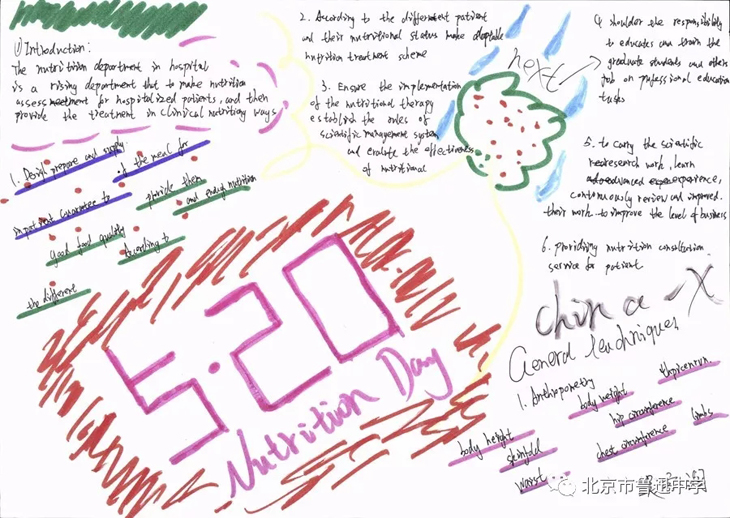 (1) Introduction:
The nutrition department in hospital
is a rising department that to make nutrition
assessmeetment for hospitalized patients, and then
provide the treatment in clinical nutritiony ways
1. Desigl prepare and supply
of the meal for
inpatient Guarantee to
provide them
and enough nutrition
good food quality
According to
the different
2. According to the different patient
and their nutritional status make adaptable
nutrition treatment scheme
3. Ensure the implementation
of the nutritional therapy
establish the rules of
scientific management system
and evalute the effectiveness
of nutritional
next
4. shoulder the responsibility
to educates and train the
graduate students and others
job on pofessional education
tasks
5. to carry the scientific
research work, learn
advanced experience,
continuously review and improved
their work to improve the level of business
6. providing nutrition consultation
service for patient
5.20
Nutrition Day
china -X
General Techniques
1. Anthropometry
body weight
hip circumference
limbs
body height
skinfold
chest circumference
waist
北京市鲁迅中学